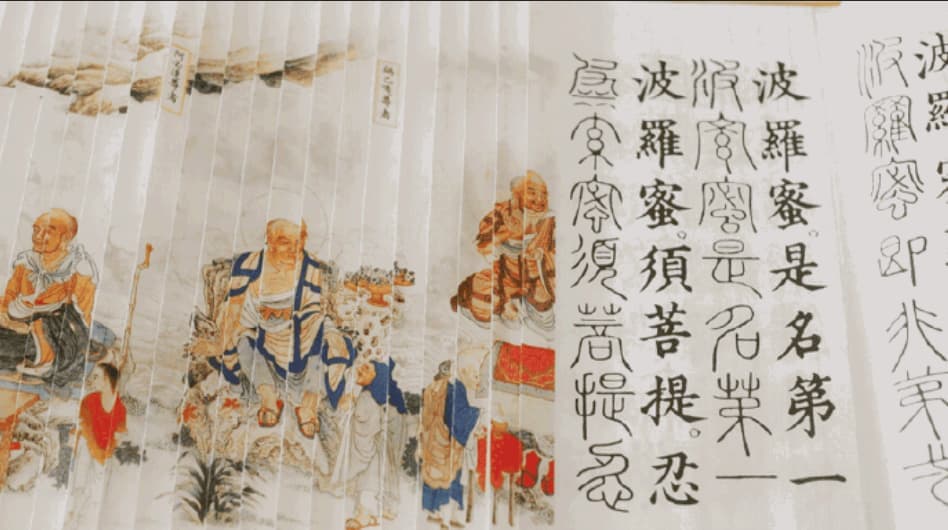 波羅
波羅蜜即非第一
波羅蜜。是名第一
波羅蜜是名第一
波羅蜜。須菩提。忍
波羅蜜須菩提忍